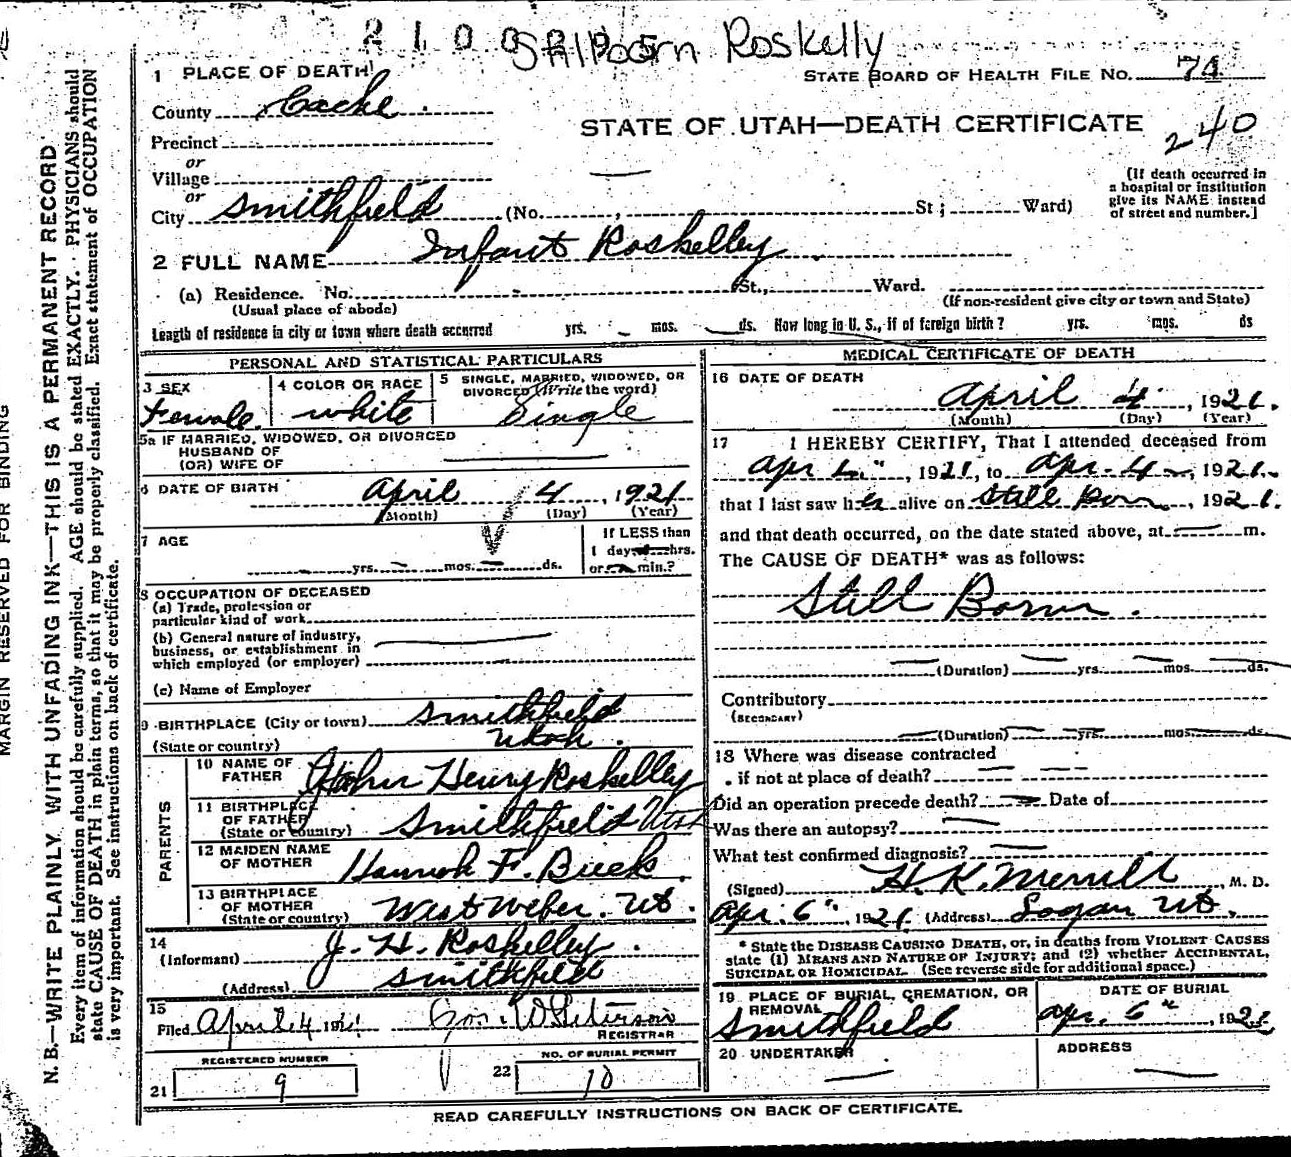 2 1 0 0 2 9 5 Stillborn Roskelly
1 PLACE OF DEATH
STATE BOARD OF HEALTH FILE NO. 74
County Cache
STATE OF UTAH—DEATH CERTIFICATE
240
Precinct
or
Village
or
City Smithfield (No. , St ; Ward)
(If death occurred in
a hospital or institution
give its NAME instead
of street and number.]
2 FULL NAME Infant Roskelley
(a) Residence. No. St., Ward.
(Usual place of abode)
(If non-resident give city or town and State)
Length of residence in city or town where death occurred yrs. mos. ds. How long in U. S., if of foreign birth? yrs. mos. ds
PERSONAL AND STATISTICAL PARTICULARS
3 SEX
Female
4 COLOR OR RACE
white
5 SINGLE, MARRIED, WIDOWED, OR
DIVORCED (Write the word)
Single
5a IF MARRIED, WIDOWED, OR DIVORCED
HUSBAND OF
(OR) WIFE OF
6 DATE OF BIRTH April 4, 1921
(Month) (Day) (Year)
7 AGE
yrs. mos. ds.
If LESS than
1 day hrs.
or min.?
8 OCCUPATION OF DECEASED
(a) Trade, profession or
particular kind of work
(b) General nature of industry,
business, or establishment in
which employed (or employer)
(c) Name of Employer
9 BIRTHPLACE (City or town) Smithfield
(State or country) Utah.
PARENTS
10 NAME OF
FATHER John Henry Roskelley
11 BIRTHPLACE
OF FATHER
(State or country) Smithfield Utah
12 MAIDEN NAME
OF MOTHER Hannah F. Buck.
13 BIRTHPLACE
OF MOTHER
(State or country) West Weber. Ut.
14
(Informant) J. H. Roskelley.
(Address) Smithfield
15
Filed April 4 1921 Geo. W Peterson
REGISTRAR
REGISTERED NUMBER
21 9
NO. OF BURIAL PERMIT
22 10
MEDICAL CERTIFICATE OF DEATH
16 DATE OF DEATH
April 4, 1921.
(Month) (Day) (Year)
17 I HEREBY CERTIFY, That I attended deceased from
Apr 4", 1921, to Apr-4, 1921.
that I last saw her alive on Still Born, 1921.
and that death occurred, on the date stated above, at m.
The CAUSE OF DEATH* was as follows:
Still Born.
(Duration) yrs. mos. ds.
Contributory
(SECONDARY)
(Duration) yrs. mos. ds.
18 Where was disease contracted
if not at place of death?
Did an operation precede death? Date of
Was there an autopsy?
What test confirmed diagnosis?
(Signed) H. K. Merrill, M. D.
Apr. 6", 1921. (Address) Logan Ut.
* State the DISEASE CAUSING DEATH, or, in deaths from VIOLENT CAUSES
state (1) MEANS AND NATURE OF INJURY; and (2) whether ACCIDENTAL,
SUICIDAL OR HOMICIDAL. (See reverse side for additional space.)
19 PLACE OF BURIAL, CREMATION, OR
REMOVAL
Smithfield
DATE OF BURIAL
Apr. 6", 1921
20 UNDERTAKER
ADDRESS
READ CAREFULLY INSTRUCTIONS ON BACK OF CERTIFICATE.
MARGIN RESERVED FOR BINDING
N. B.—WRITE PLAINLY WITH UNFADING INK—THIS IS A PERMANENT RECORD
Every item of information should be carefully supplied. AGE should be stated EXACTLY. PHYSICIANS should
state CAUSE OF DEATH in plain terms, so that it may be properly classified. Exact statement of OCCUPATION
is very important. See instructions on back of certificate.